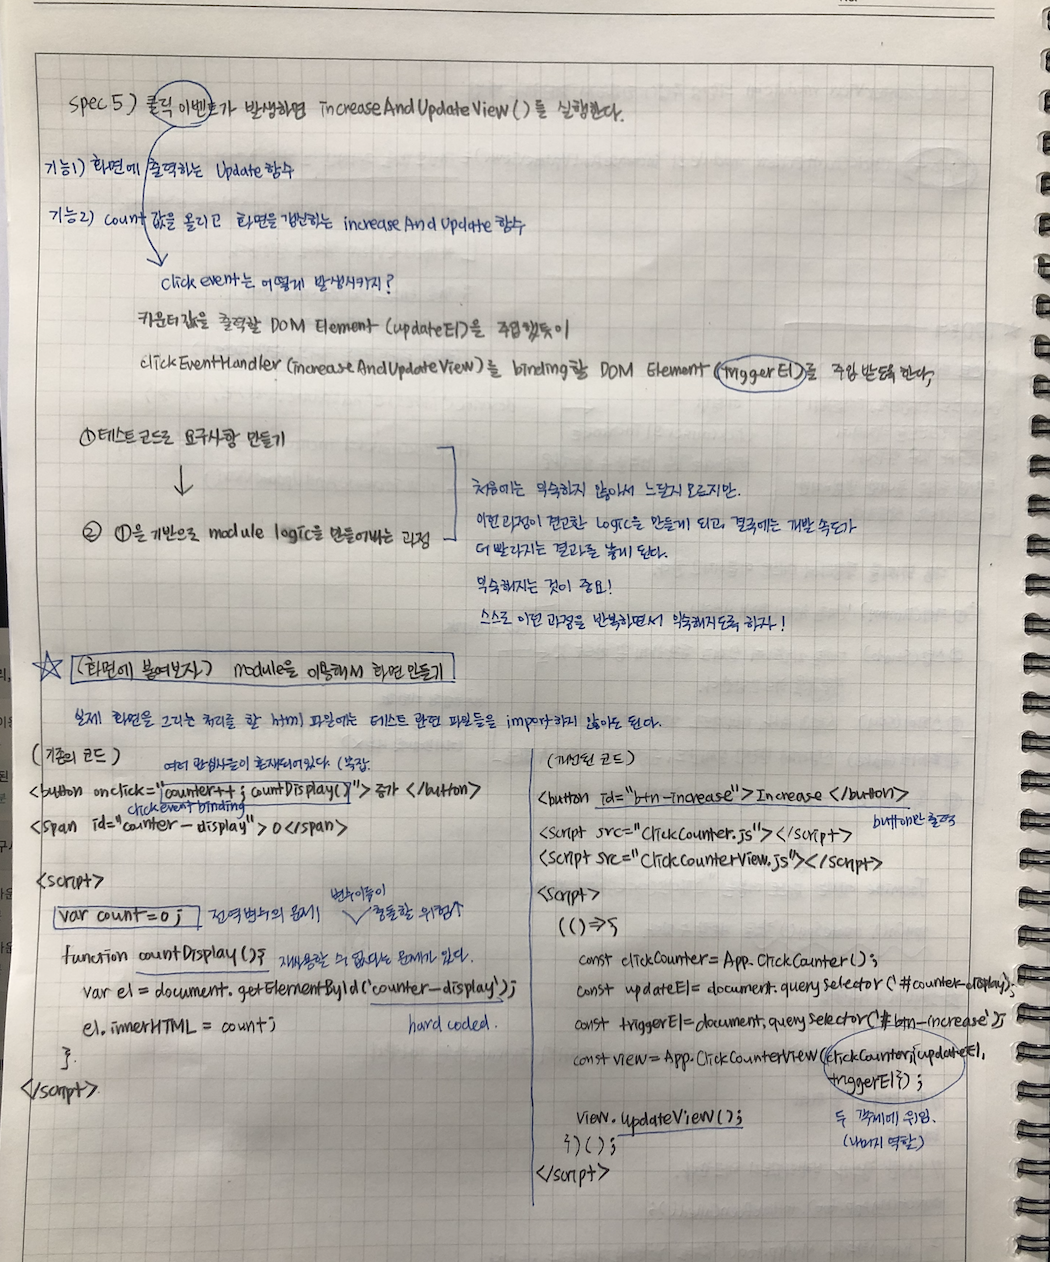 spec 5) 클릭 이벤트가 발생하면 increaseAndUpdateView()를 실행한다.
기능1) 화면에 출력하는 Update 함수
기능2) count 값을 올리고 화면을 갱신하는 increase And Update 함수
click event는 어떻게 발생시키지?
카운터 값을 출력할 DOM Element (updateEl)을 주입했듯이
clickEventHandler (increaseAndUpdateView)를 binding할 DOM Element (triggerEl)를 주입 받도록 한다;
① 테스트 코드로 요구사항 만들기
↓
② ①을 기반으로 module logic을 만들어내는 과정
처음에는 익숙하지 않아서 느릴지 모르지만.
이런 과정이 견고한 logic을 만들게 되고, 결국에는 개발 속도가
더 빨라지는 결과를 낳게 된다.
익숙해지는 것이 중요!
스스로 이런 과정을 반복하면서 익숙해지도록 하자!
☆ (화면에 붙여보자) module을 이용해서 화면 만들기
실제 화면을 그리는 처리를 할 html 파일에는 테스트 관련 파일들을 import하지 않아도 된다.
(기존의 코드)
여러 관심사들이 혼재되어있다. (복잡.
<button onclick="counter++; countDisplay()"> 증가 </button>
click event binding
<span id="counter-display">0</span>
<script>
var count=0; 전역변수의 문제
변수이름이
충돌할 위험↑
function countDisplay(){ 재사용할 수 없다는 문제가 있다.
var el = document.getElementById('counter-display');
hard coded.
el.innerHTML = count;
}.
</script>
(개선된 코드)
<button id="btn-increase">Increase </button>
button만 출력
<script src="ClickCounter.js"></script>
<script src="ClickCounterView.js"></script>
<script>
(()=>{
const clickCounter = App.ClickCounter();
const updateEl = document.querySelector('#counter-display);
const triggerEl=document.querySelector('#btn-increase');
const view = App.ClickCounterView(clickCounter,{updateEl,
triggerEl});
view.updateView();
두 객체에 위임.
(나머지 역할)
})();
</script>